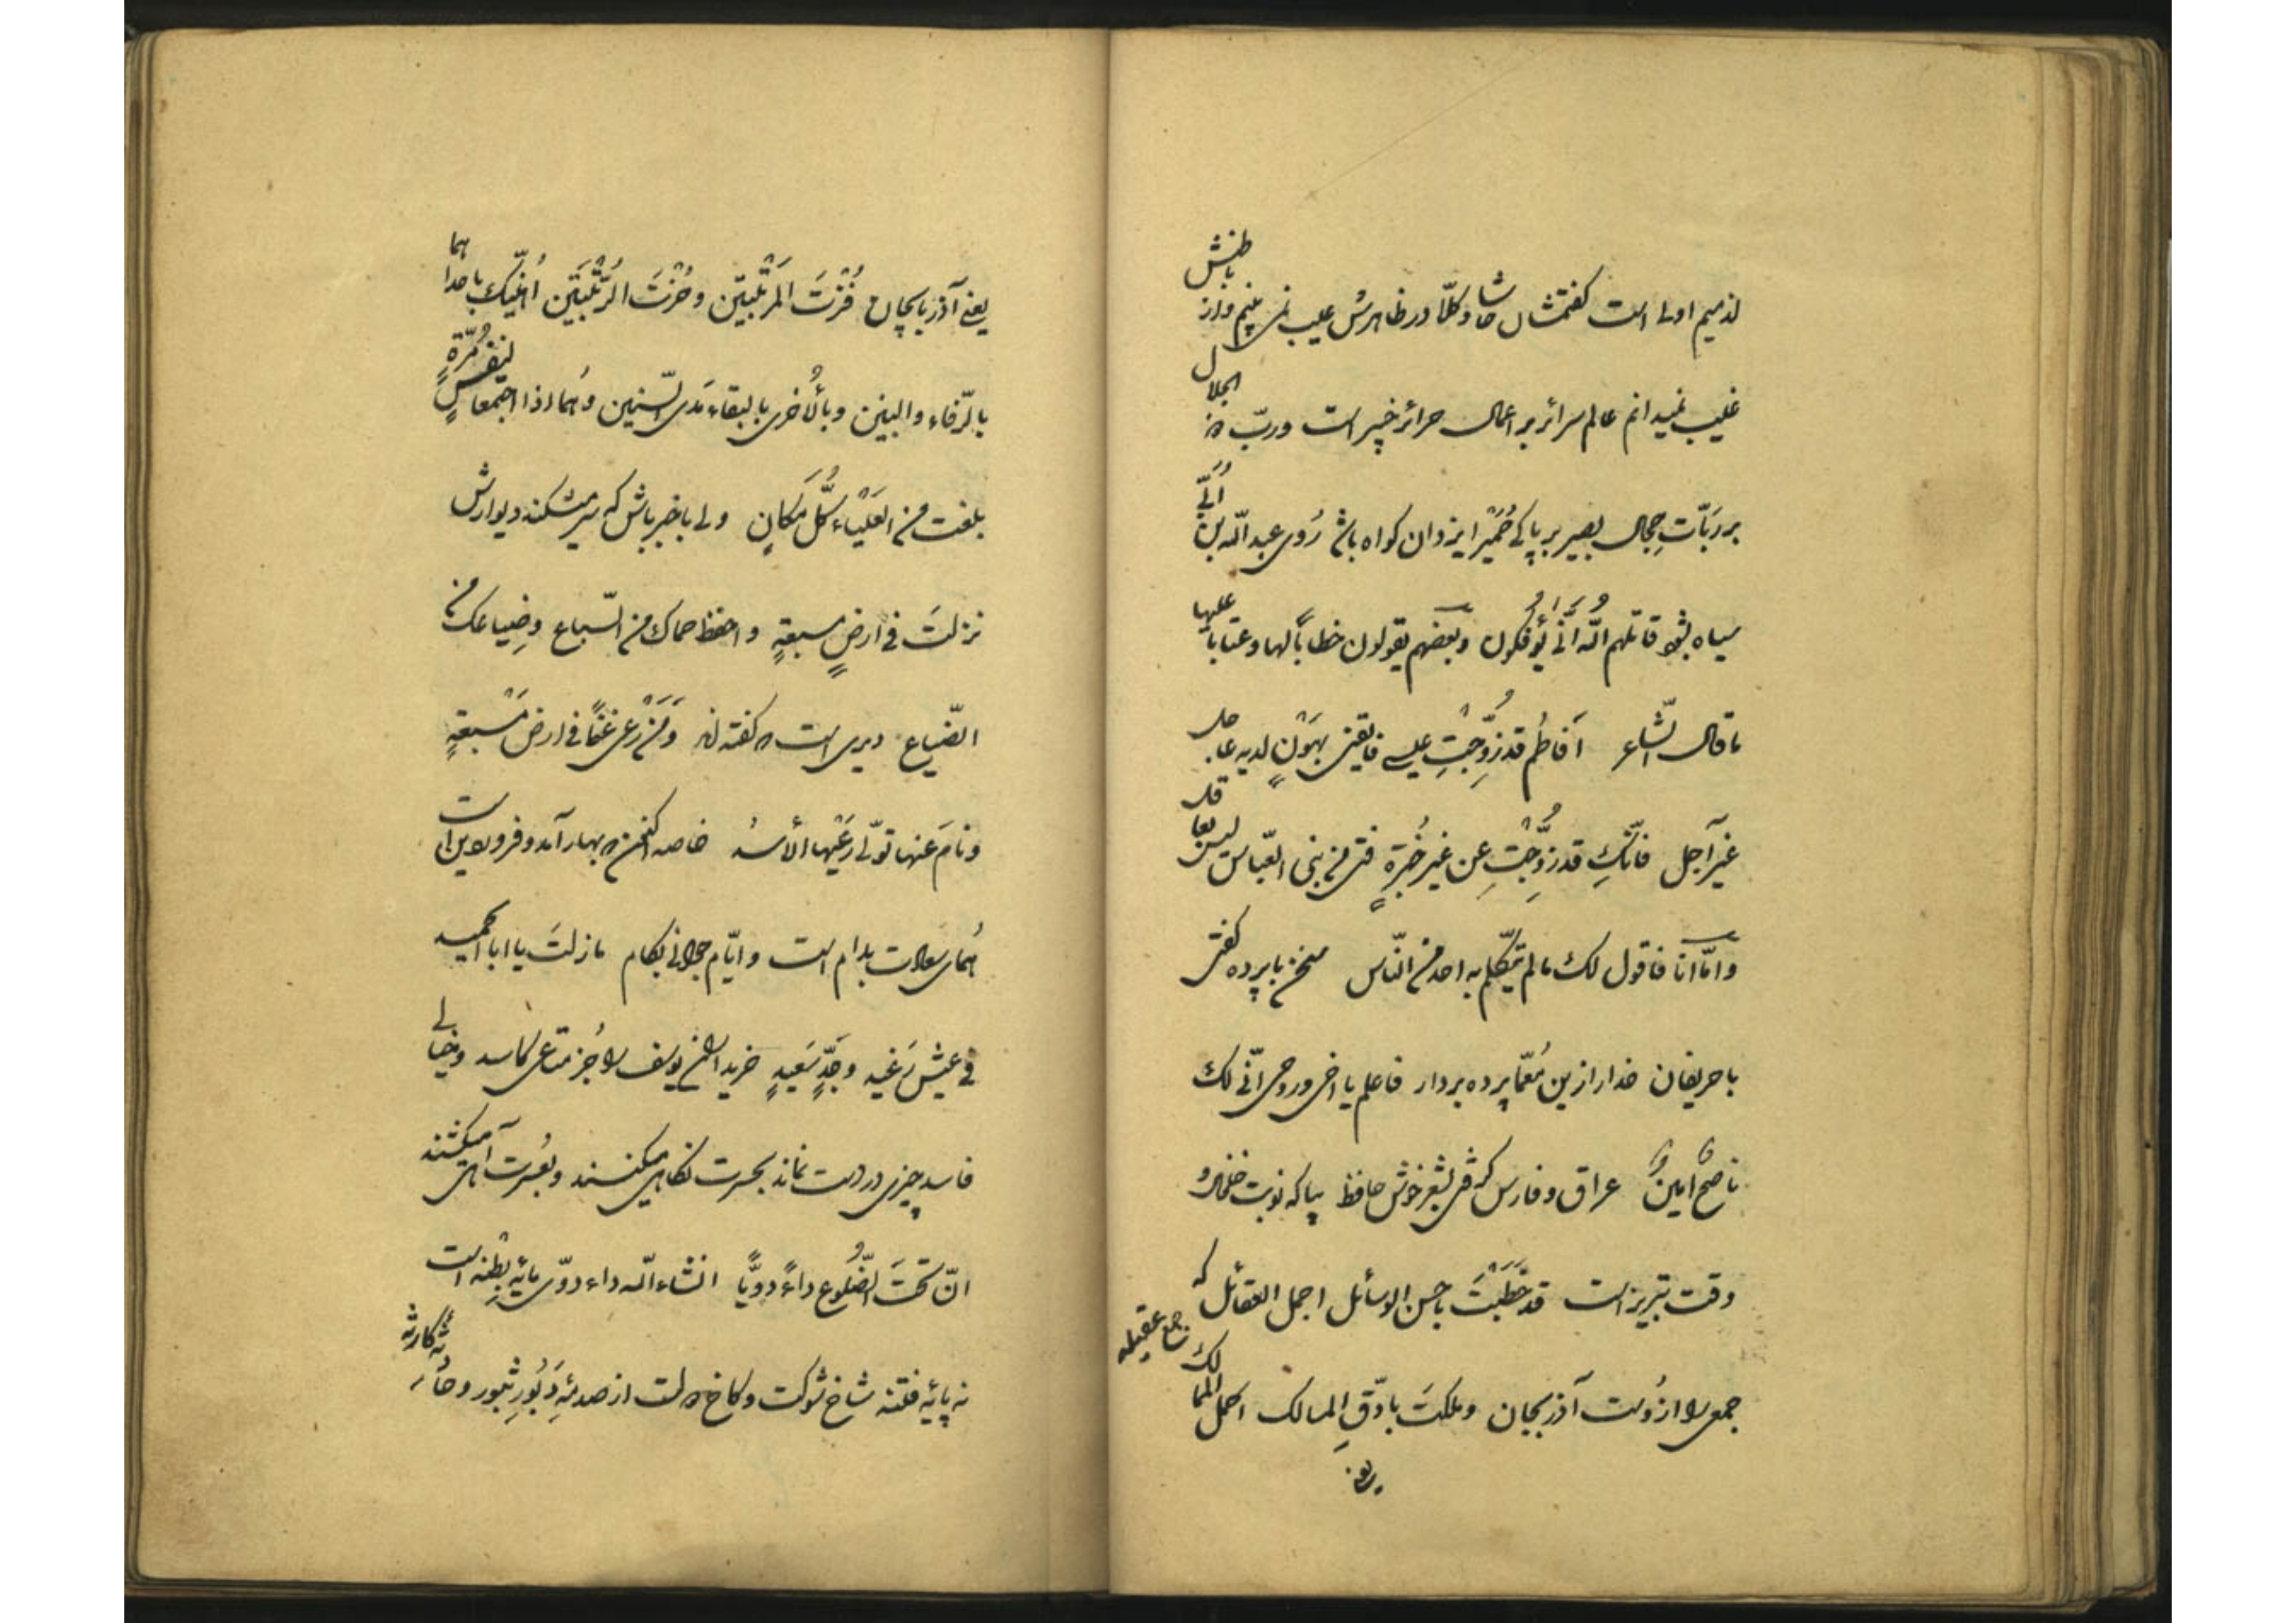 لذمیم اولی است گفتمشان حاشا وکلّا در ظاهرش عیب نمی بینم و از باطنش
غیب نمیدانم عالم سرائر بر اعمال حرائر خبیر است و ربّ الجلال
بر ربّات حجال بصیر بر پاکی حُمَیْر ایزدان کواه باش رَوی عبد الله بن اُبَیّ
سیاه بشود قاتلهم الله اَنّی یُؤفکون وبعضهم یقولون خطاباً لها وعتاباً علیها
ما قال الشّاعر أَفاطمُ قد زُوِّجْتِ عیسی فایقنی بهَوْنٍ لدیه عاجل
غیر آجل فانّکِ قد زُوِّجْتِ عن غیر خُبْرَةٍ فتی من بنی العبّاس لیس بعاقل
وامّا انا فاقول لک ما لم یتکلّم به احد من النّاس سخن با پرده گفتی
با حریفان خدا را زین مُعمّا پرده بردار فاعلم یا اخی وروحی انّی لک
ناصحٌ امینٌ عراق و فارس گرفتی بشعر خوش حافظ بیا که نوبت بغداد و
وقت تبریز است قد خَطَبْتَ باحسن الوسائل اجمل العقائل که
جمع عقیله
جمعی را از دست آذربیجان وملکتَ بادقِّ المسالک اکمل الممالک
یعنی
یعنی آذربایجان فُزْتَ المَرْتَبَتَین و حُزْتَ الرُّتْبَتَین اُهَنّیک باحداهما
بالرّفاء والبنین وبالُاخری بالبقاء مَدی السّنین وهُما اذا اجتمعا لنفسٍ مُرّةٍ
بلغت من العَلْیاء کُلَّ مَکانٍ ولی باخبر باش که سر میشکند دیوارش
نزلتَ فی ارضٍ مسبعةٍ واحفظ حماک من السّباع وضِیاعک من
الضّیاع دیری است که گفته اند وَمَنْ رَعی غنماً فی ارض مَسْبعةٍ
ونامَ عنها تولّی رَعْیَها الأسدُ خاصه اکنون که بهار آمد و فروردین است
هُمای سعادت بدام است و ایّام جوانی بکام مازلتَ یا ابا الحمید
فی عیش رَغید وجَدٍّ سَعیدٍ خریداران یوسف را جُز متاعی کاسد و خیالی
فاسد چیزی در دست نماند بحسرت نگاهی میکنند و بعُسرت آهی میکشند
انّ تحتَ الضُّلُوع داءً دویّاً انشاء الله داء دوّی مایهٔ بِطْنه است
نه پایهٔ فتنه شاخ شوکت و کاخ دولت از صدمهٔ دَبُورِ ثبور و